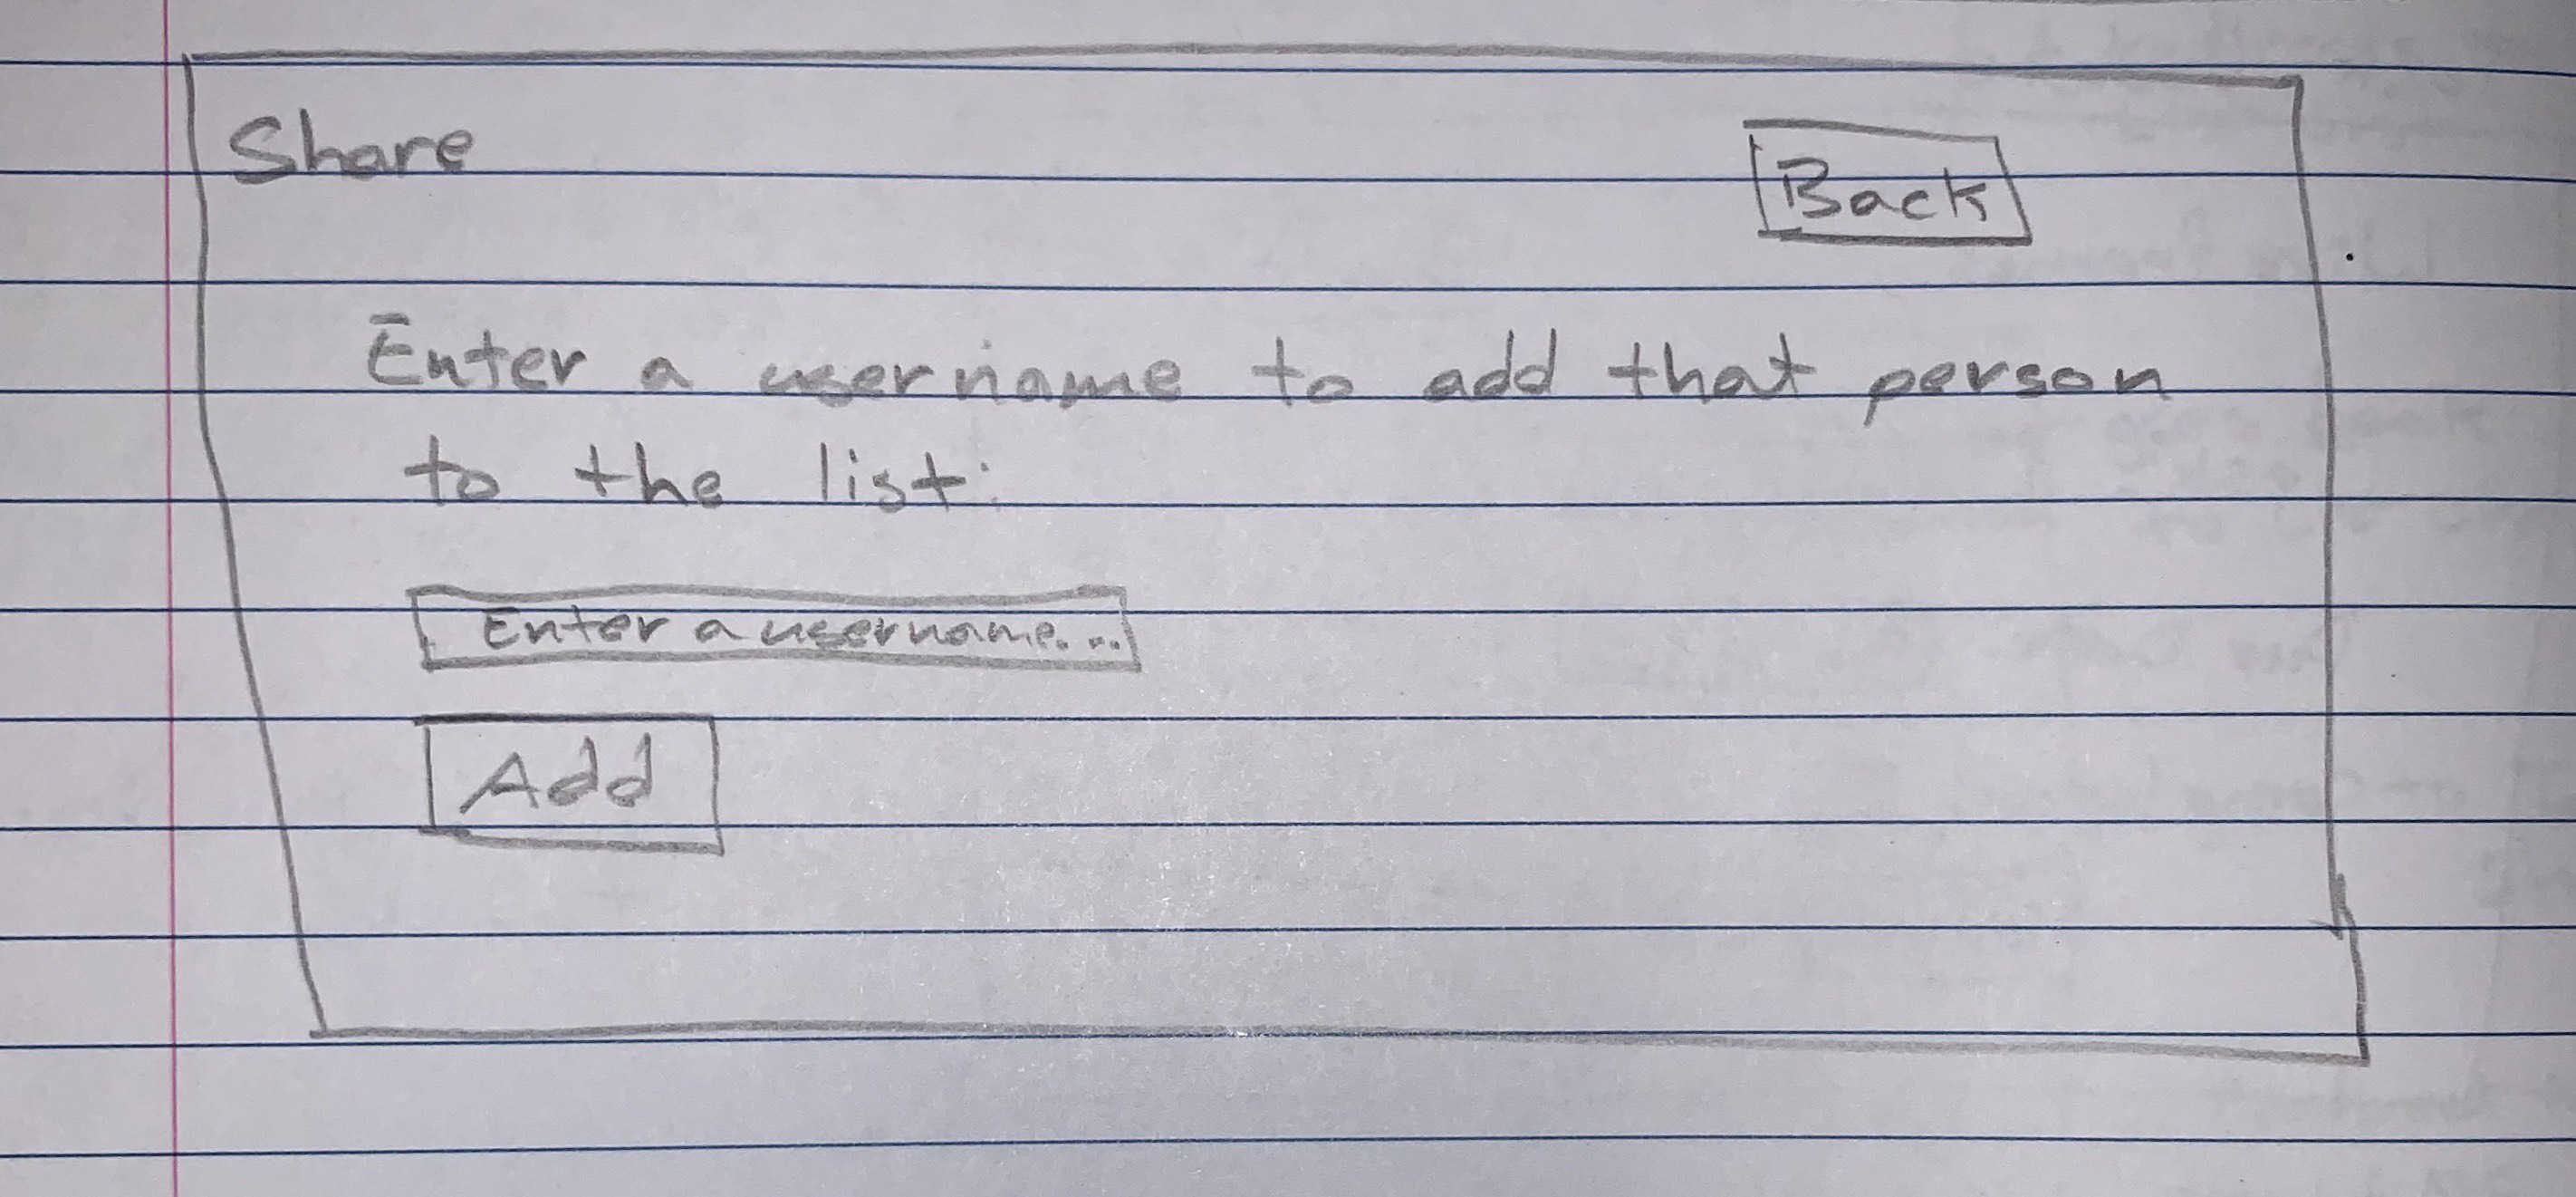 Share
Back
Enter a username to add that person
to the list:
Enter a username...
Add